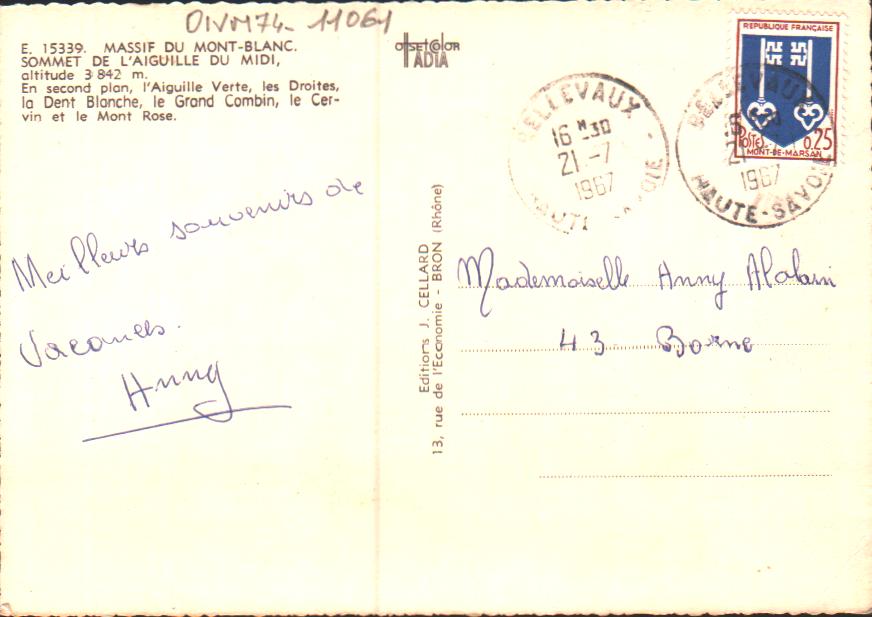 DIVM74- 11061
E. 15339. MASSIF DU MONT-BLANC.
SOMMET DE L'AIGUILLE DU MIDI,
altitude 3 842 m.
En second plan, l'Aiguille Verte, les Droites,
la Dent Blanche, le Grand Combin, le Cer-
vin et le Mont Rose.
Meilleurs souvenirs de
Vacances.
Anny
OFFSET COLOR
IADIA
Editions J. CELLARD
13, rue de l'Economie - BRON (Rhône)
BELLEVAUX
16 H 30
21 -7
1967
HAUTE-SAVOIE
REPUBLIQUE FRANÇAISE
POSTES 0,25
MONT-DE-MARSAN
BELLEVAUX
16 H 30
21 -7
1967
HAUTE-SAVOIE
Mademoiselle Anny
43 Borne